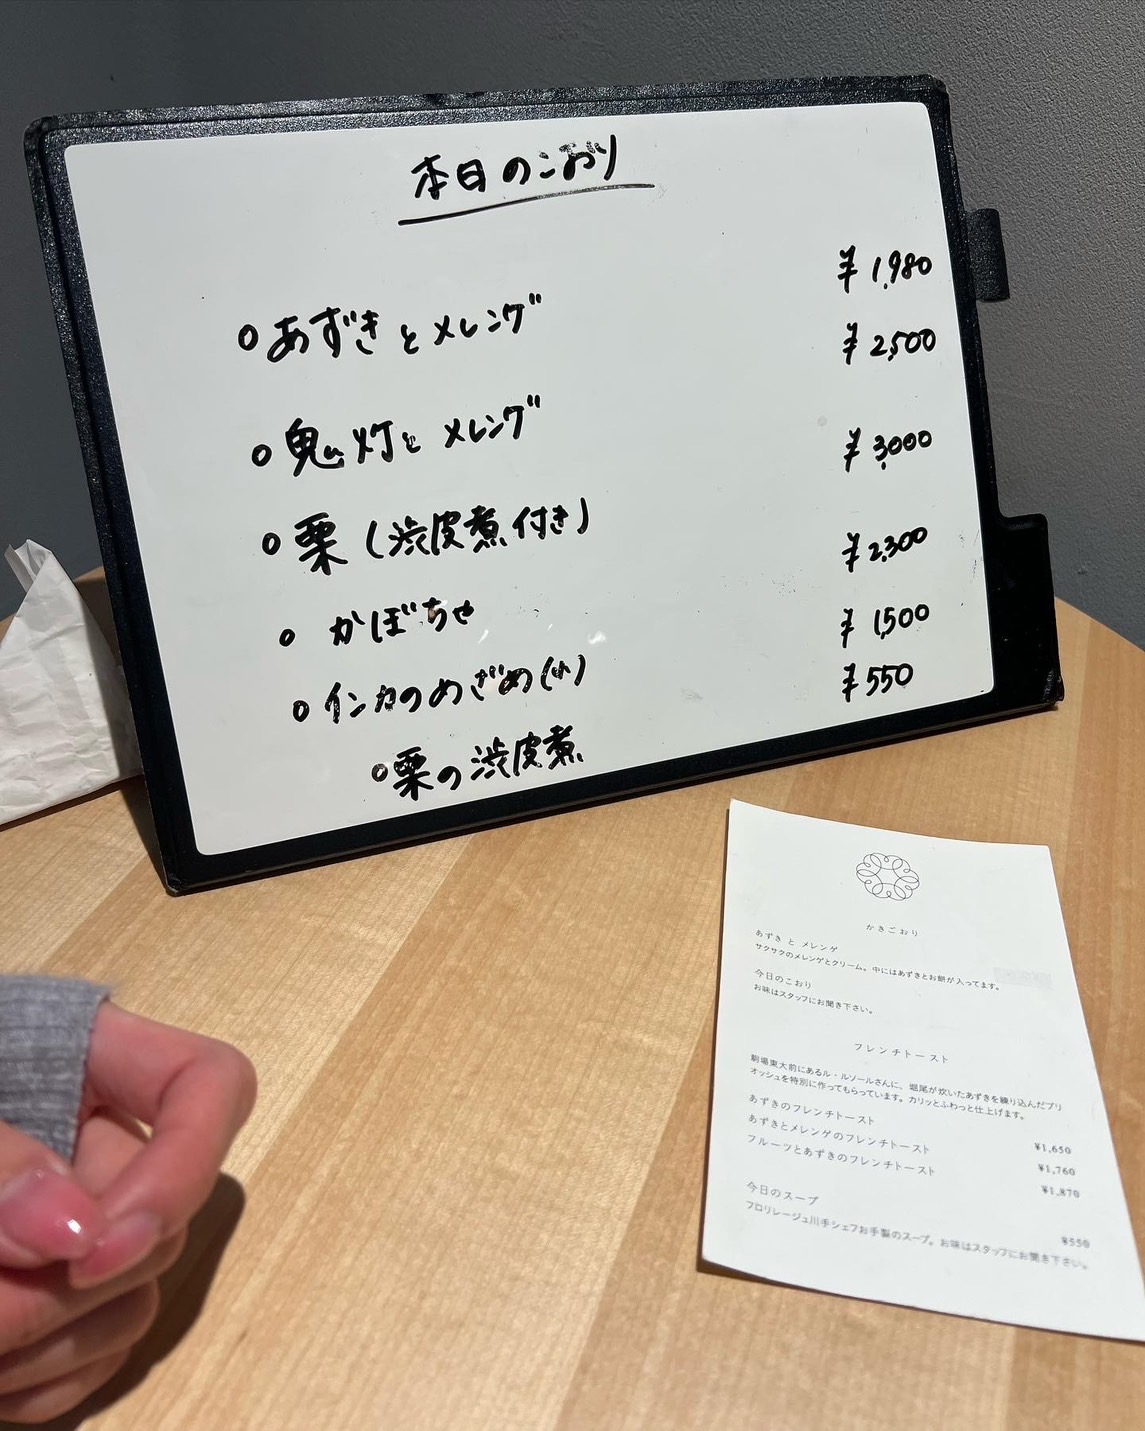 本日のこおり
○あずきとメレンゲ ¥1,980
○鬼灯とメレンゲ ¥2,500
○栗(渋皮煮付き) ¥3,000
○かぼちゃ ¥2,300
○インカのめざめ(小) ¥1,500
○栗の渋皮煮 ¥550
かきごおり
あずき と メレンゲ
サクサクのメレンゲとクリーム。中にはあずきとお餅が入ってます。
今日のこおり
お味はスタッフにお聞き下さい。
フレンチトースト
駒場東大前にあるル・ルソールさんに、堀尾が炊いたあずきを練り込んだブリ
オッシュを特別に作ってもらっています。カリッとふわっと仕上げます。
あずきのフレンチトースト ¥1,650
あずきとメレンゲのフレンチトースト ¥1,760
フルーツとあずきのフレンチトースト ¥1,870
今日のスープ ¥550
フロリレージュ川手シェフお手製のスープ。お味はスタッフにお聞き下さい。